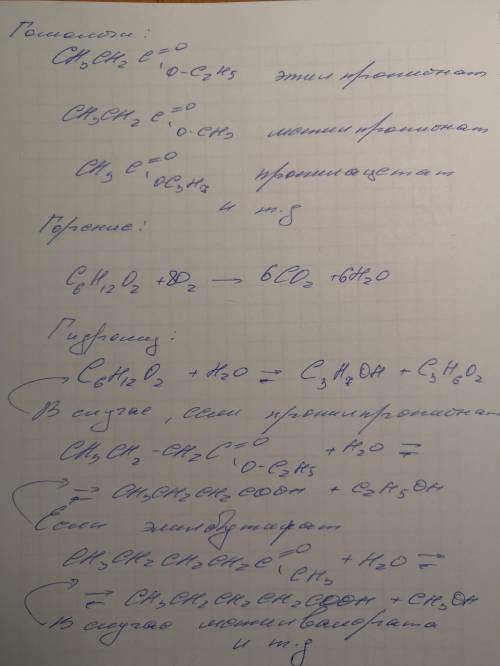 Гомологи:
CH₃CH₂C=O
O-C₂H₅ этилпропионат
CH₃CH₂C=O
O-CH₃ метилпропионат
CH₃C=O
OC₃H₇ пропилацетат
и т.д
Горение:
C₆H₁₂O₂ + 8O₂ → 6CO₂ + 6H₂O
Гидролиз:
C₆H₁₂O₂ + H₂O ⇌ C₃H₇OH + C₃H₆O₂
В случае, если пропилпропионат
CH₃CH₂-CH₂C=O + H₂O ⇌
O-C₂H₅
⇌ CH₃CH₂CH₂COOH + C₂H₅OH
Если этилбутират
CH₃CH₂CH₂CH₂C=O + H₂O ⇌
CH₃
⇌ CH₃CH₂CH₂CH₂COOH + CH₃OH
В случае метилвалерата
и т.д